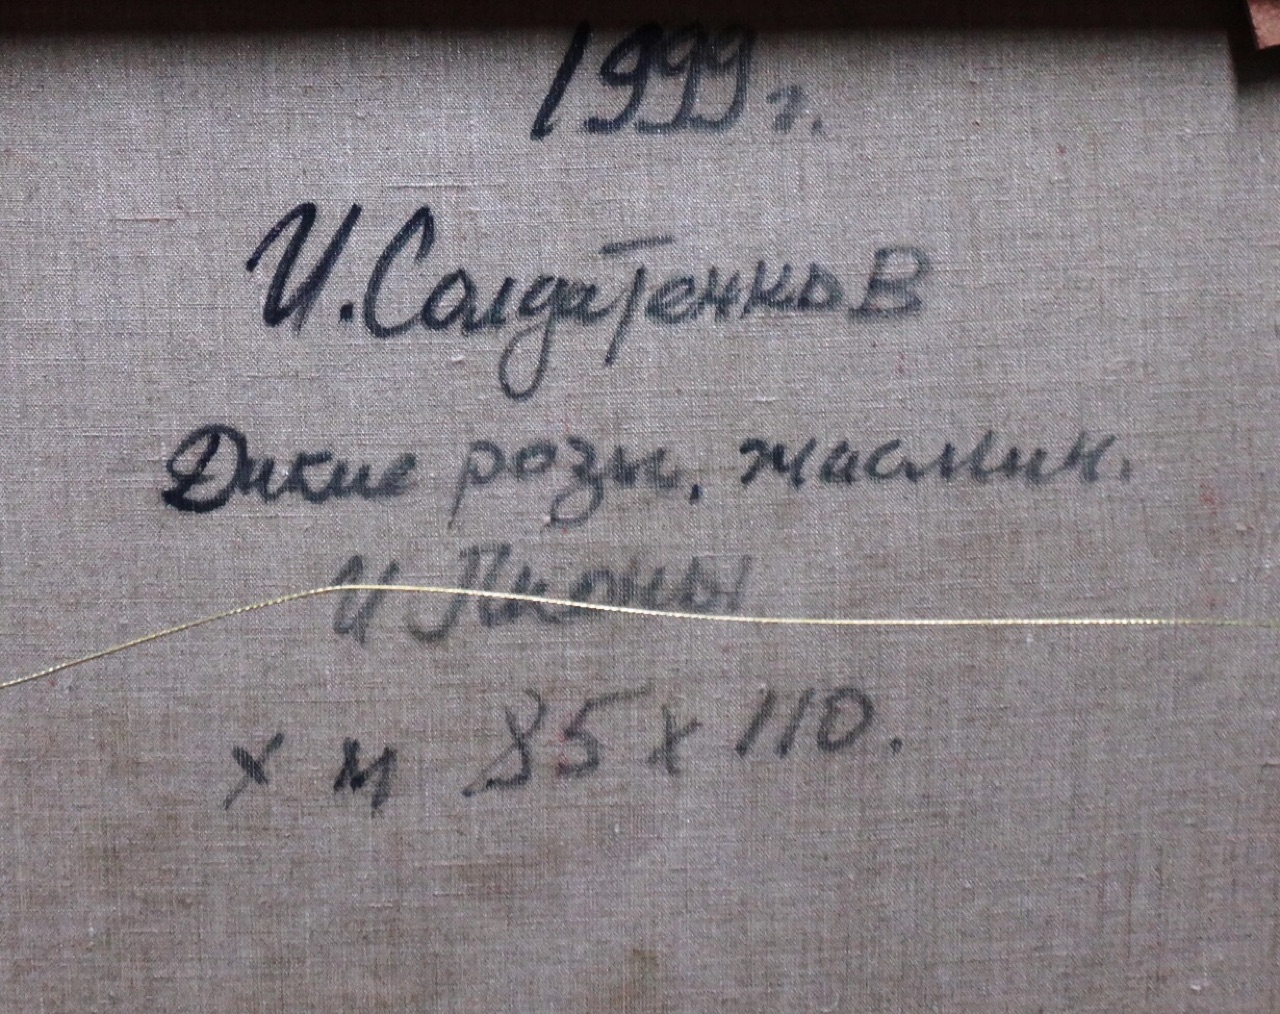 1999 г.
И. Солдатенков
Дикие розы, жасмин.
и Пионы
х м 85 х 110.